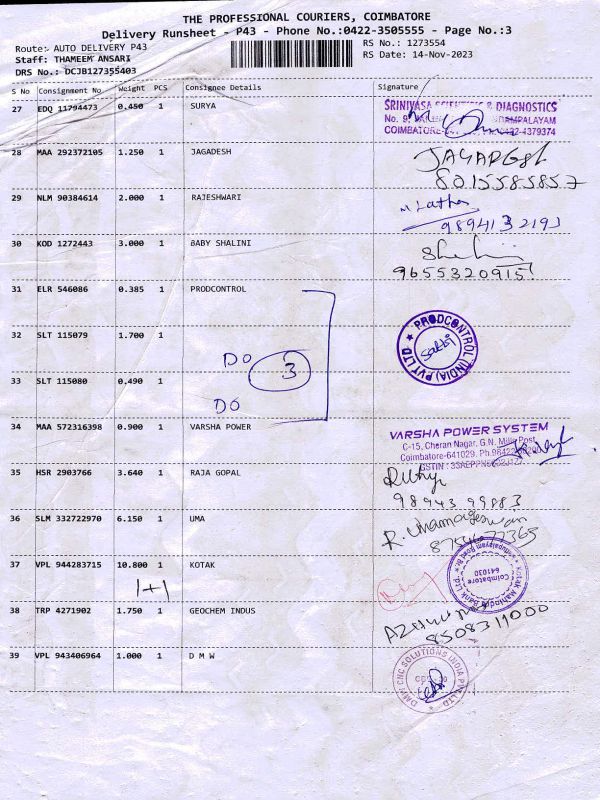 THE PROFESSIONAL COURIERS, COIMBATORE
Delivery Runsheet - P43 - Phone No.:0422-3505555 - Page No.:3
Route: AUTO DELIVERY P43
Staff: THAMEEM ANSARI
DRS No.: DCJB127355403
RS No.: 1273554
RS Date: 14-Nov-2023
S No Consignment No Weight PCS Consignee Details Signature
27 EDQ 11794473 0.450 1 SURYA
SRINIVASA & DIAGNOSTICS
No. 9,
COIMBATORE
28 MAA 292372105 1.250 1 JAGADESH
8015585857
29 NLM 90384614 2.000 1 RAJESHWARI
M Latha
9894132191
30 KOD 1272443 3.000 1 BABY SHALINI
Shalini
9655320915
31 ELR 546086 0.385 1 PRODCONTROL
32 SLT 115079 1.700 1
DO
3
PRODCONTROL (INDIA) PVT LTD
33 SLT 115080 0.490 1
DO
34 MAA 572316398 0.900 1 VARSHA POWER
VARSHA POWER SYSTEM
C-15, Cheran Nagar, G.N. Mills Post,
Coimbatore-641029.
35 HSR 2903766 3.640 1 RAJA GOPAL
98943 99883
36 SLM 332722970 6.150 1 UMA
R. Umamageswari
37 VPL 944283715 10.800 1 KOTAK
1+1
Kotak Mahindra Bank Ltd
Coimbatore
641030
38 TRP 4271902 1.750 1 GEOCHEM INDUS
8508311000
39 VPL 943406964 1.000 1 D M W
DMW CNC SOLUTIONS INDIA PVT LTD